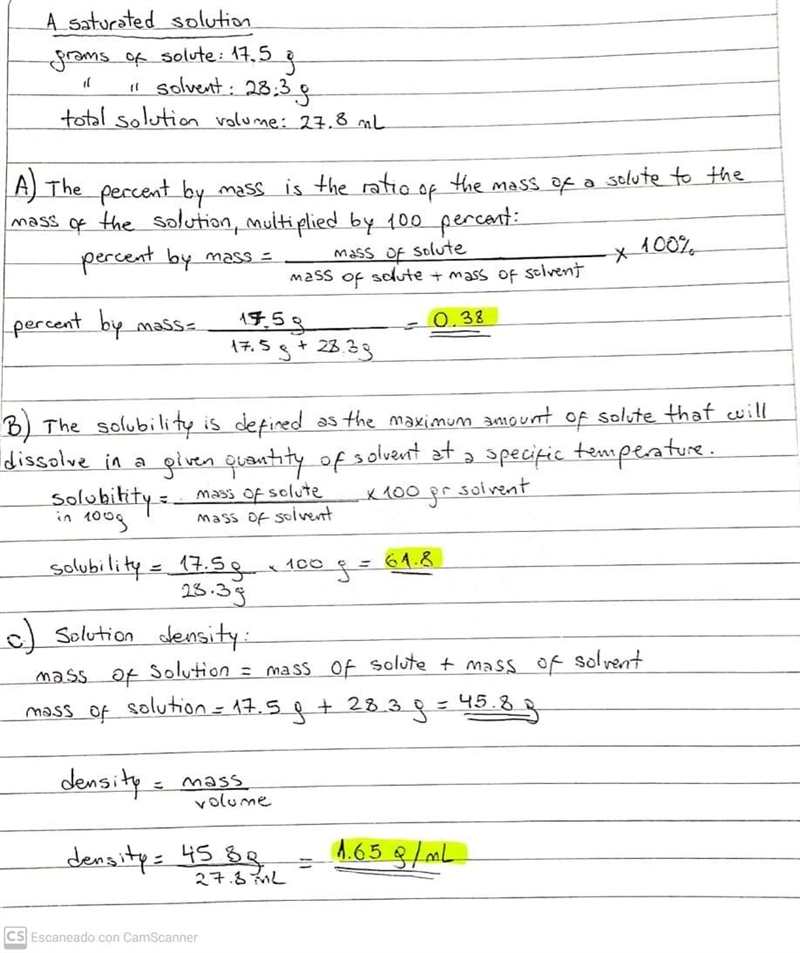 A saturated solution
grams of solute: 17.5 g
" " solvent: 28.3 g
total solution volume: 27.8 mL
A) The percent by mass is the ratio of the mass of a solute to the
mass of the solution, multiplied by 100 percent:
percent by mass = mass of solute / mass of solute + mass of solvent x 100%
percent by mass = 17.5 g / 17.5 g + 28.3 g = 0.38
B) The solubility is defined as the maximum amount of solute that will
dissolve in a given quantity of solvent at a specific temperature.
solubility in 100g = mass of solute / mass of solvent x 100 gr solvent
solubility = 17.5 g / 28.3 g x 100 g = 61.8
C.) Solution density:
mass of Solution = mass of solute + mass of solvent
mass of solution = 17.5 g + 28.3 g = 45.8 g
density = mass / volume
density = 45.8 g / 27.8 mL = 1.65 g/mL
CS Escaneado con CamScanner